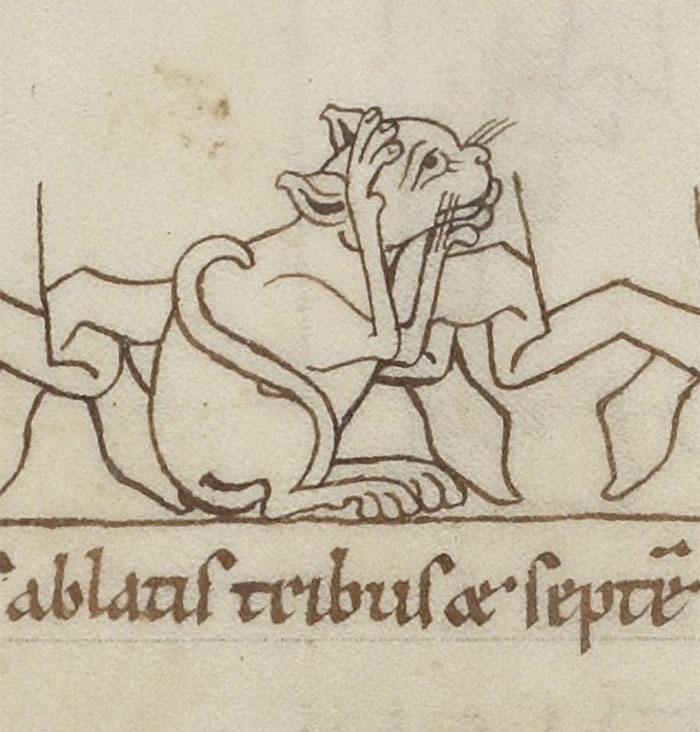 ablatis tribus &' septē